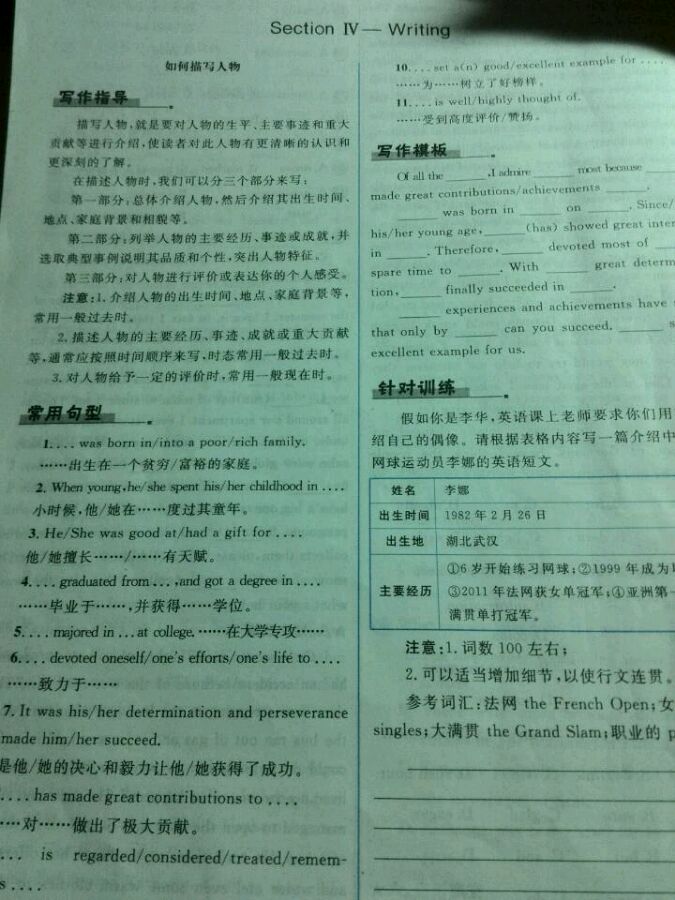 Section Ⅳ — Writing
如何描写人物
写作指导
描写人物,就是要对人物的生平、主要事迹和重大
贡献等进行介绍,使读者对此人物有更清晰的认识和
更深刻的了解。
在描述人物时,我们可以分三个部分来写:
第一部分:总体介绍人物,然后介绍其出生时间、
地点、家庭背景和相貌等。
第二部分:列举人物的主要经历、事迹或成就,并
选取典型事例说明其品质和个性,突出人物特征。
第三部分:对人物进行评价或表达你的个人感受。
注意:1. 介绍人物的出生时间、地点、家庭背景等,
常用一般过去时。
2. 描述人物的主要经历、事迹、成就或重大贡献
等,通常应按照时间顺序来写,时态常用一般过去时。
3. 对人物给予一定的评价时,常用一般现在时。
常用句型
1. ... was born in/into a poor/rich family.
……出生在一个贫穷/富裕的家庭。
2. When young, he/she spent his/her childhood in ....
小时候,他/她在……度过其童年。
3. He/She was good at/had a gift for ....
他/她擅长……/……有天赋。
4. ... graduated from ..., and got a degree in ....
……毕业于……,并获得……学位。
5. ... majored in ... at college. ……在大学专攻……
6. ... devoted oneself/one's efforts/one's life to ....
……致力于……
7. It was his/her determination and perseverance
made him/her succeed.
是他/她的决心和毅力让他/她获得了成功。
.... has made great contributions to ....
……对……做出了极大贡献。
... is regarded/considered/treated/remem-
10. ... set a(n) good/excellent example for ....
……为……树立了好榜样。
11. ... is well/highly thought of.
……受到高度评价/赞扬。
写作模板
Of all the ____, I admire ____ most because ____
made great contributions/achievements ____.
____ was born in ____ on ____. Since/
his/her young age, ____ (has) showed great inter
in ____. Therefore, ____ devoted most of ____
spare time to ____. With ____ great determ
tion, ____ finally succeeded in ____.
____ experiences and achievements have
that only by ____ can you succeed. ____
excellent example for us.
针对训练
假如你是李华,英语课上老师要求你们用
绍自己的偶像。请根据表格内容写一篇介绍中
网球运动员李娜的英语短文。
姓名 李娜
出生时间 1982 年 2 月 26 日
出生地 湖北武汉
主要经历 ①6 岁开始练习网球;②1999 年成为
③2011 年法网获女单冠军;④亚洲第一
满贯单打冠军。
注意:1. 词数 100 左右;
2. 可以适当增加细节,以使行文连贯。
参考词汇:法网 the French Open;女
singles;大满贯 the Grand Slam;职业的 p